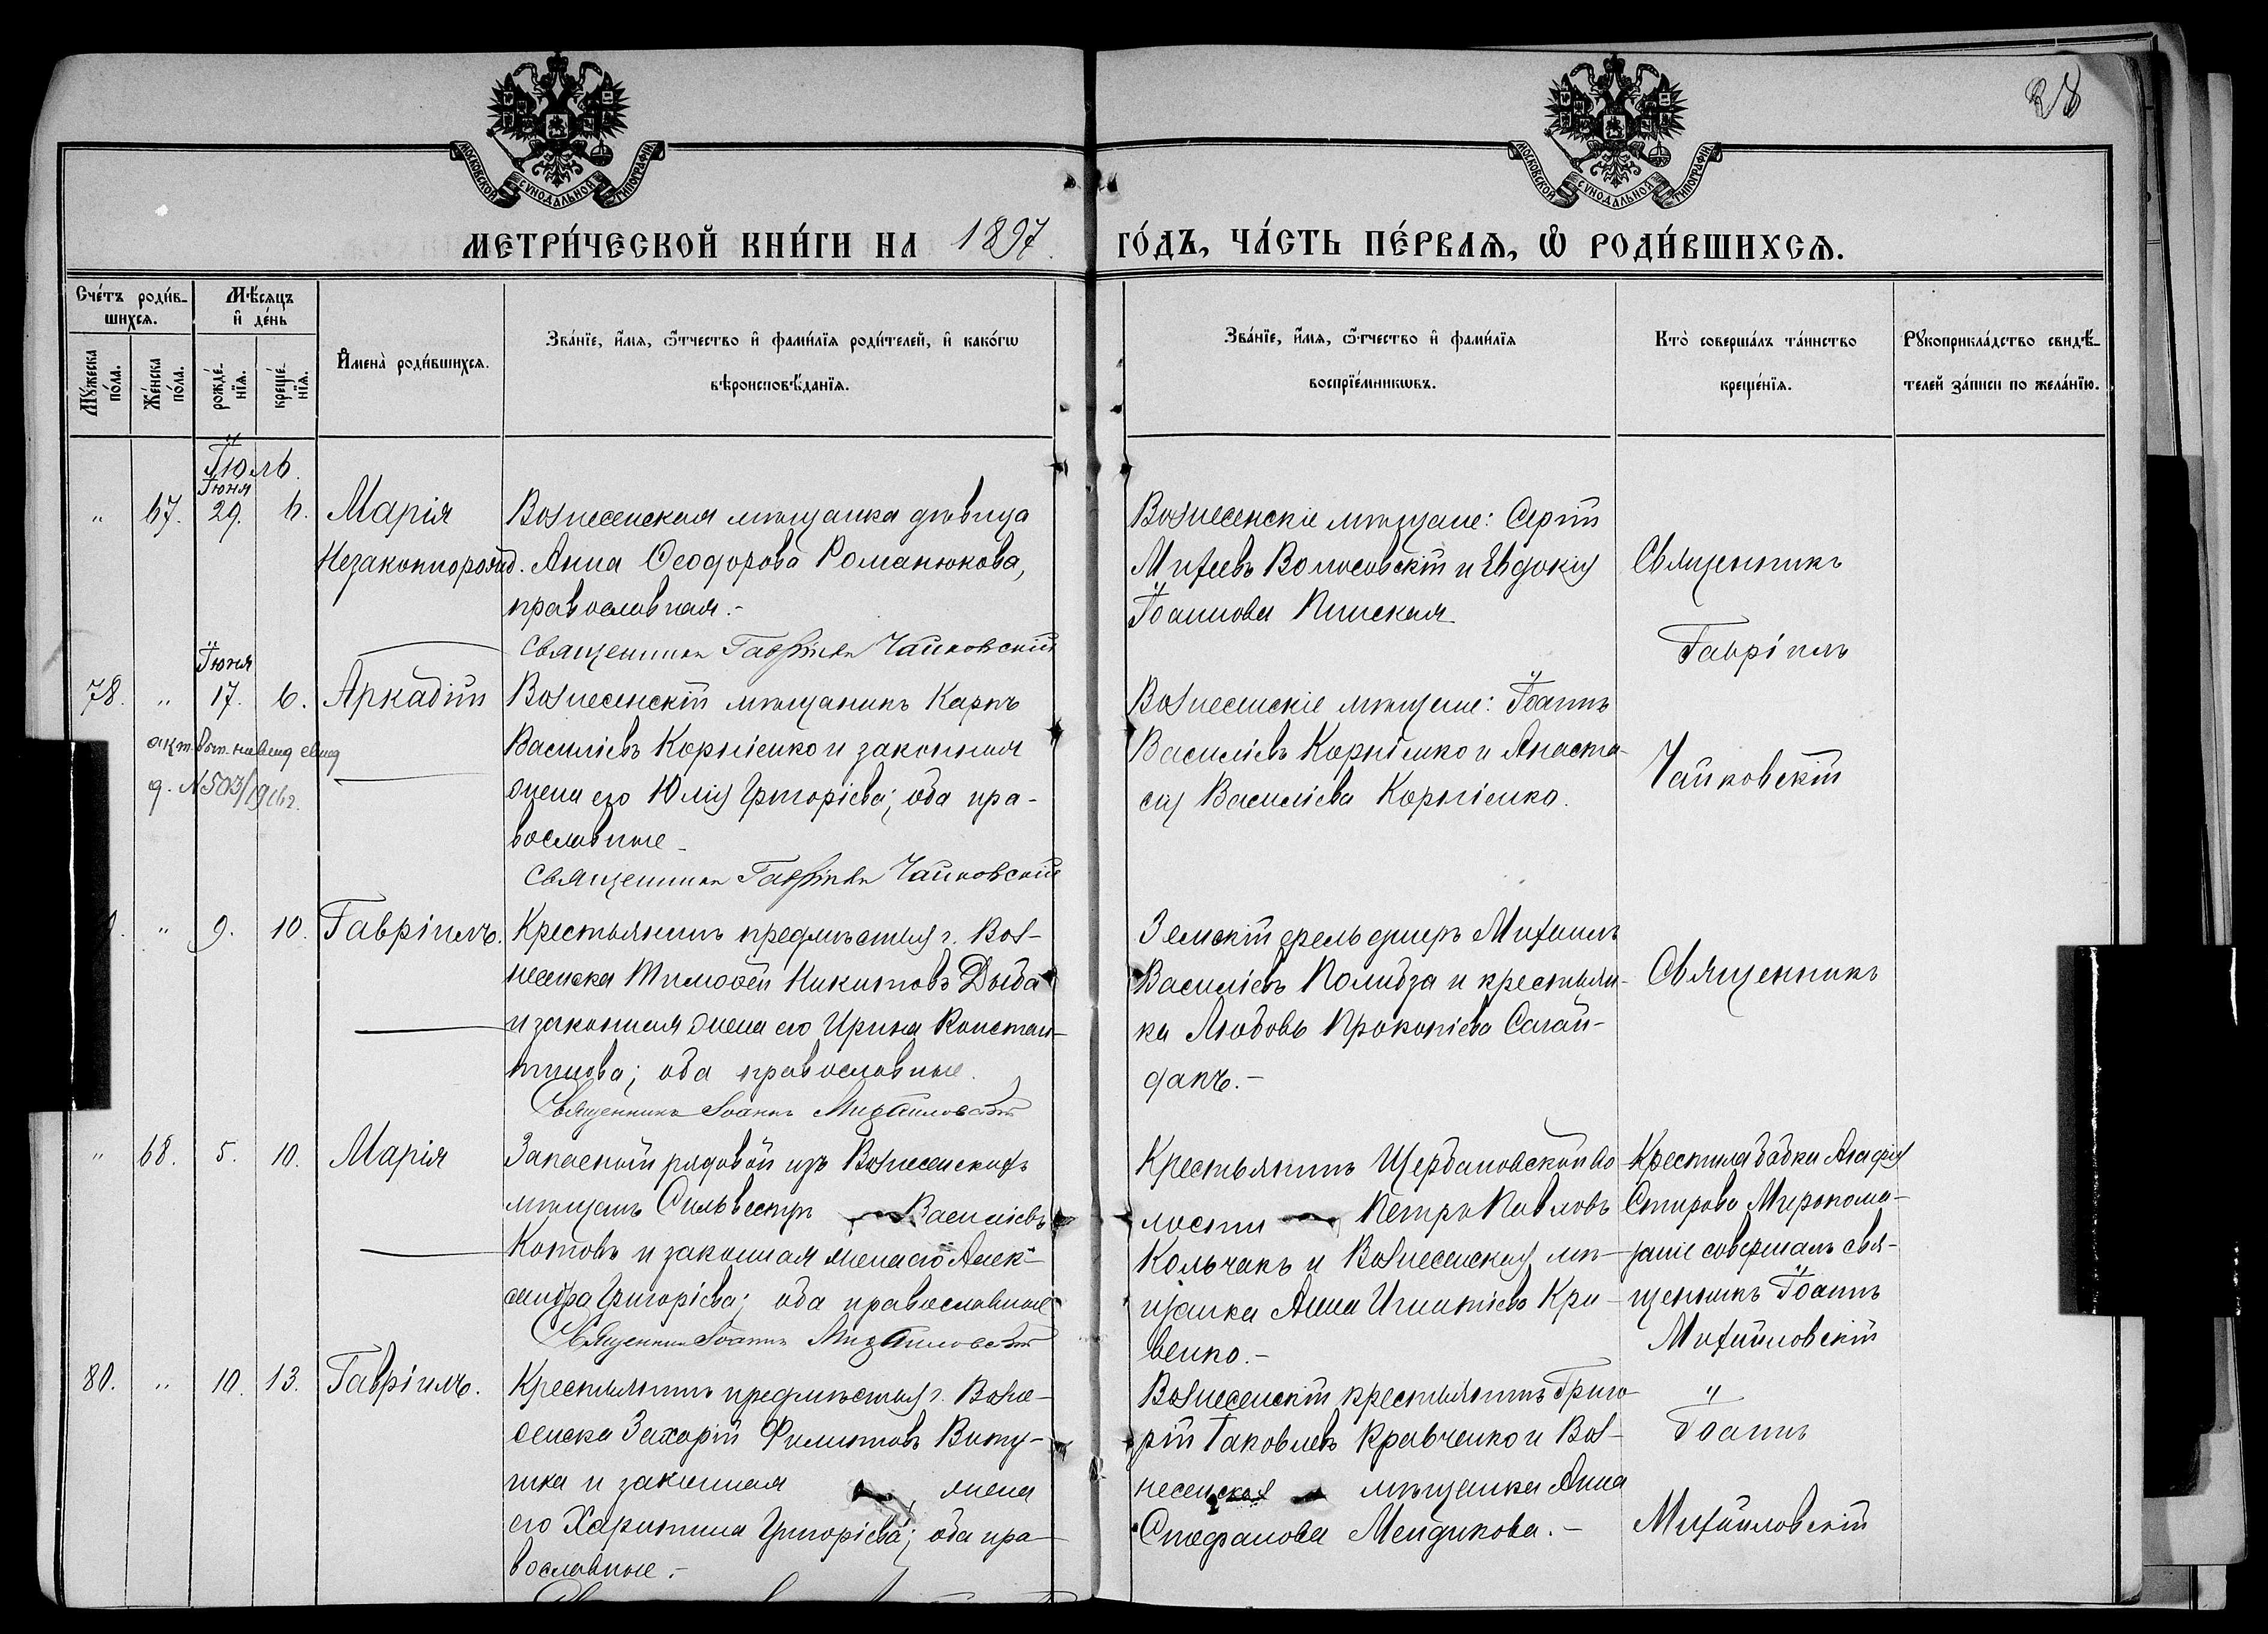 28
МОСКОВСКОЙ СѴНОДАЛЬНОЙ ТИПОГРАФІИ
МОСКОВСКОЙ СѴНОДАЛЬНОЙ ТИПОГРАФІИ
МЕТРИ́ЧЕСКОЙ КНИ́ГИ НА 1897 ГО́ДЪ, ЧА́СТЬ ПЕ́РВАѦ, Ѡ҆ РОДИ́ВШИХСѦ.
Сче́тъ роди́в-
шихсѧ.
Мꙋ́жеска по́ла.
Же́нска по́ла.
Мѣ́сѧцъ
и҆ де́нь
рожде́-
нїѧ.
креще́-
нїѧ.
И҆мена̀ роди́вшихсѧ.
Зва́нїе, и҆́мѧ, ѻ҆́тчество и҆ фами́лїѧ роди́телей, и҆ како́гѡ
вѣроисповѣ́данїѧ.
Зва́нїе, и҆́мѧ, ѻ҆́тчество и҆ фами́лїѧ
воспрїе́мникѡвъ.
Кто̀ соверша́лъ та́инство
креще́нїѧ.
Рꙋкоприкла́дство свидѣ́-
телей за́писи по жела́нїю.
Іюль.
Іюня
" 67. 29. 6. Марія
Незаконнорожд.
Вознесенская мѣщанка дѣвица
Анна Ѳеодорова Романюкова,
православная.-
Священникъ Гавріилъ Чайковскій
Вознесенскіе мѣщане: Сергій
Михеевъ Волосовскій и Евдокія
Іоаннова Пинская
Священникъ
Гавріилъ
Чайковскій
Іюня
78. " 17. 6. Аркадій
д. №503/1916г.
Вознесенскій мѣщанинъ Карпъ
Василіевъ Корніенко и законная
жена его Юлія Григоріева; оба пра-
вославные.
Священникъ Гавріилъ Чайковскій
Вознесенскіе мѣщане: Іоаннъ
Василіевъ Корніенко и Анаста-
сія Василіева Корніенко.
" 9. 10. Гавріилъ.
Крестьянинъ предмѣстья г. Воз-
несенска Тимоѳей Никитовъ Дыба
и законная жена его Ирина Констан-
тинова; оба православные.
Священникъ Іоаннъ Михайловскій
Земскій фельдшеръ Михаилъ
Василіевъ Полибза и крестьян-
ка Любовь Прокопіева Сагай-
дакъ.-
Священникъ
" 68. 5. 10. Марія
Запасной рядовой изъ Вознесенскихъ
мѣщанъ Сильвестръ Василіевъ
Котовъ и законная жена его Алек-
сандра Григоріева; оба православные
Священникъ Іоаннъ Михайловскій
Крестьянинъ Щербановской во
лости Петръ Павловъ
Кольчакъ и Вознесенская мѣ-
щанка Анна Игнатіева Кри-
венко.-
Крестила бабка Агафія
Спирова Миропома-
заніе совершалъ свя-
щенникъ Іоаннъ
Михайловскій
80. " 10. 13. Гавріилъ.
Крестьянинъ предмѣстья г. Возне-
сенска Захарій Филиповъ Вату-
шка и законная жена
его Харитина Григоріева; оба пра-
вославные.-
Вознесенскій крестьянинъ Григо-
рій Іаковлевъ Кравченко и Воз-
несенская мѣщанка Анна
Стефанова Мендикова.-
"
Іоаннъ
Михайловскій